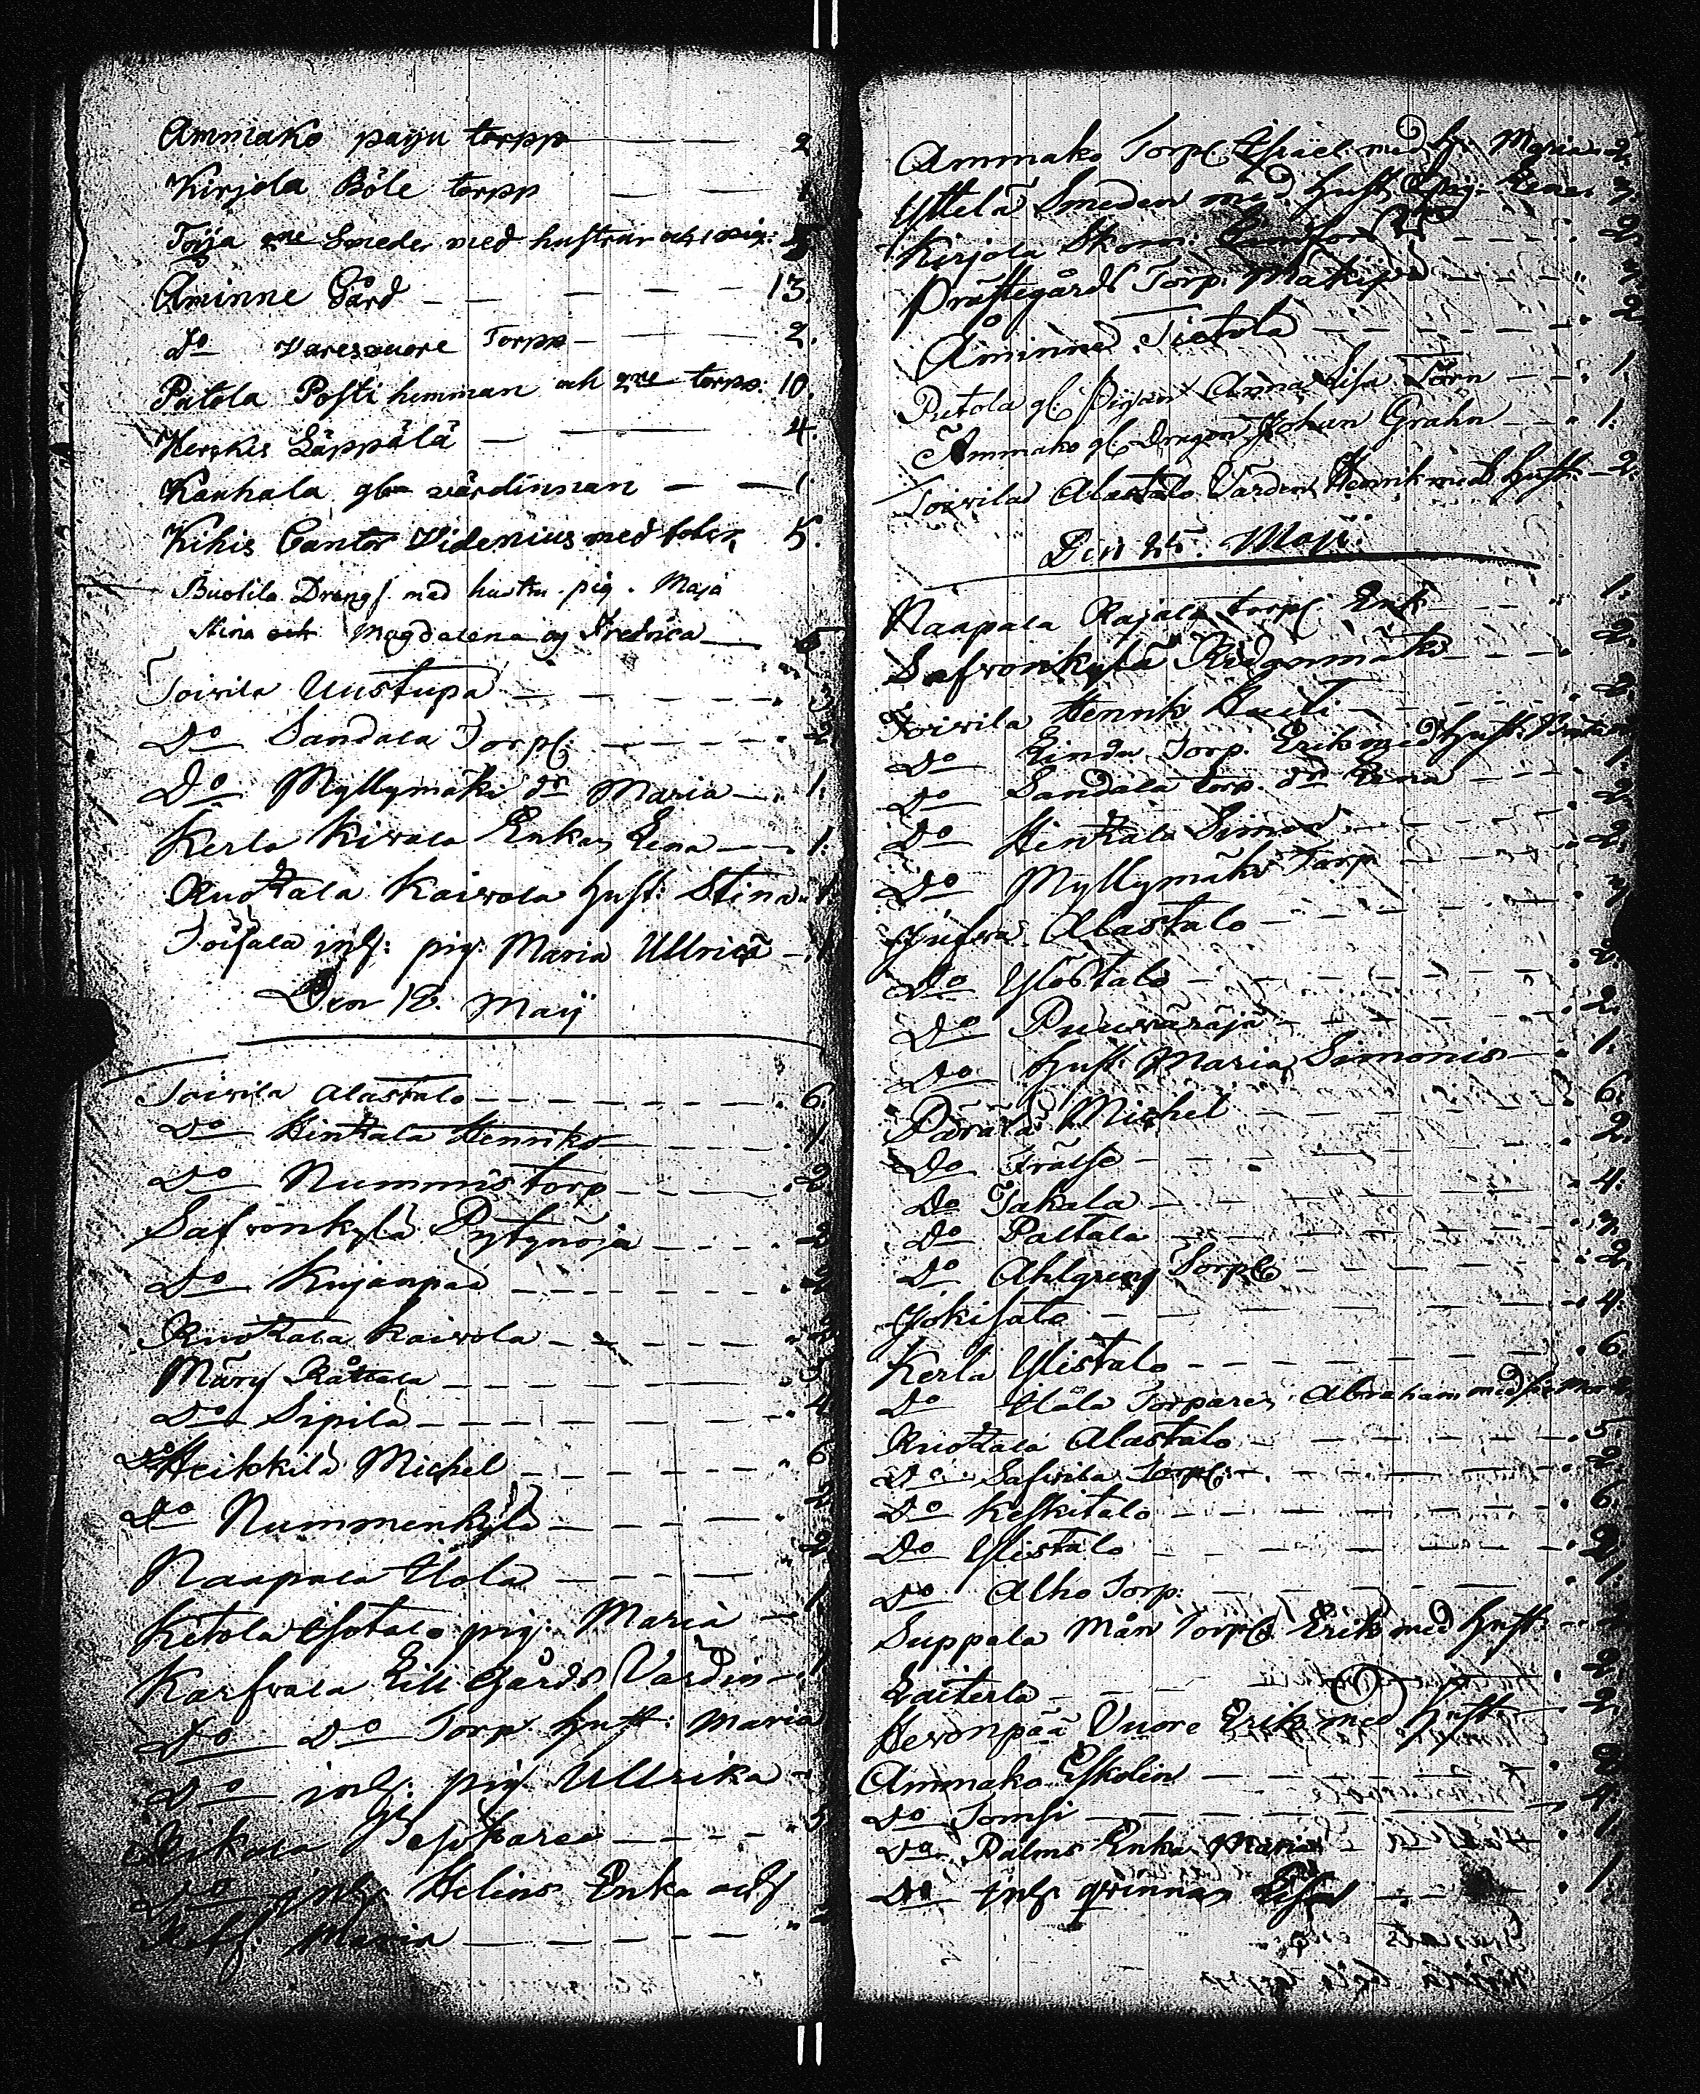 Ammako paiju torpp — — 2
Kirjola Böle torpp — — 1
Törja Smeder med hustrur och 1 pig: 5
Åminne Gård — — — — 13.
Do Varesvuore Torpp — — 2.
Patola Posti hemman och 2ne torpp: 10.
Kerkis Säppälä — — 4.
Kauhala gla värdinnan — — 1
Kihis Cantor Widenius med 5.
Buolila Drängs med hustru pig. Maja
Stina och Magdalena og Fredrica — 6
Toivila Uustupa — — — — 3
Do Sandala Torp: — — — — 2
Do Myllymäki dr Maria — 1.
Kerla Kivala Enkan Lena — — 1.
Ruokala Kaivola Hust: Stina 1.
Toisala inh: pig: Maria Ullrica — 1
Den 18. Maij
Toivila Alastalo — — — — 6
Do Hinkala Henriks — — — 1
Do Nummis torp — — — 2.
Safvonkylä Pytynoja — — — 2
Do Kujanpää — — — — 2
Ruokala Kaivola — — — 2
Märy Råttala — — — — 5
Do Sipilä — — — — 4
Do Heikkilä Michel — — — — 6
Do Nummenkylä — — — 2
Naapala Ylöla — — — 2
Ketola Isotalo pig: Maria — 1
Karfvala Lill Gårds Värdin — 1
Do Do Torp Hust: Maria
Do inh: pig Ullrika —
— — — 5
Do inh: Helins Enka och
Maria — — — —
Ammako Torp: Israel med h: Maria 2.
Yttelä Smeden med Hust. 3.
Kirjola Skom: 2.
Prästegårds Torp: Mäkipä — — — 3.
Åminne Tietola — — — — 2
Putola gl: Pigan Anna Lisa Törn — — 1
Ammako gl: Dragon Johan Grahn — — 1.
Toivila Alastalo Värden Henrik med Hust: — 2.
Den 25. Maji.
Naapala Rajala torp: Enk — — — 1.
Safvonkylä Ridanmäki — — — 2.
Toivila Henrik Huiti — — — 2
Do Linda Torp. Erik med Hust:
Do Sandala torp. dr Lena — — — 1.
Do Hinkala Simon — — — 2
Do Myllymäki Torp — — — 2.
Jufva Alastalo — — — — 3
Do Ylöstalo — — — — 2.
Do Puuväräjä — — — — 2.
Do Hust: Maria Simonis — — 1.
Pärälä Michel — — — — 6.
Do Frälse — — — — 2.
Do Takala — — — — 4.
Do Paltala — — — — 3.
Do Ahlgren Torp — — — 2.
Jokisala — — — — 4.
Kerla Ylistalo — — — — 6.
Do Ylöla Torparen Abraham med
Ruokala Alastalo — — — — 5.
Do Safvila torp: — — — — 2.
Do Keskitalo — — — — 6.
Do Ylistalo — — — — 2.
Do Alho Torp: — — — — 1.
Suppala Mån Torp Erik med Hust:
Laiterla — — — — 2.
Hevonpää Vuore Erik med Hust: — 2.
Ammako Eskolin — — — —
Do Tomsi — — — —
Do Palms Enka Maria — 1
Do inh: qvinnan — — 1.